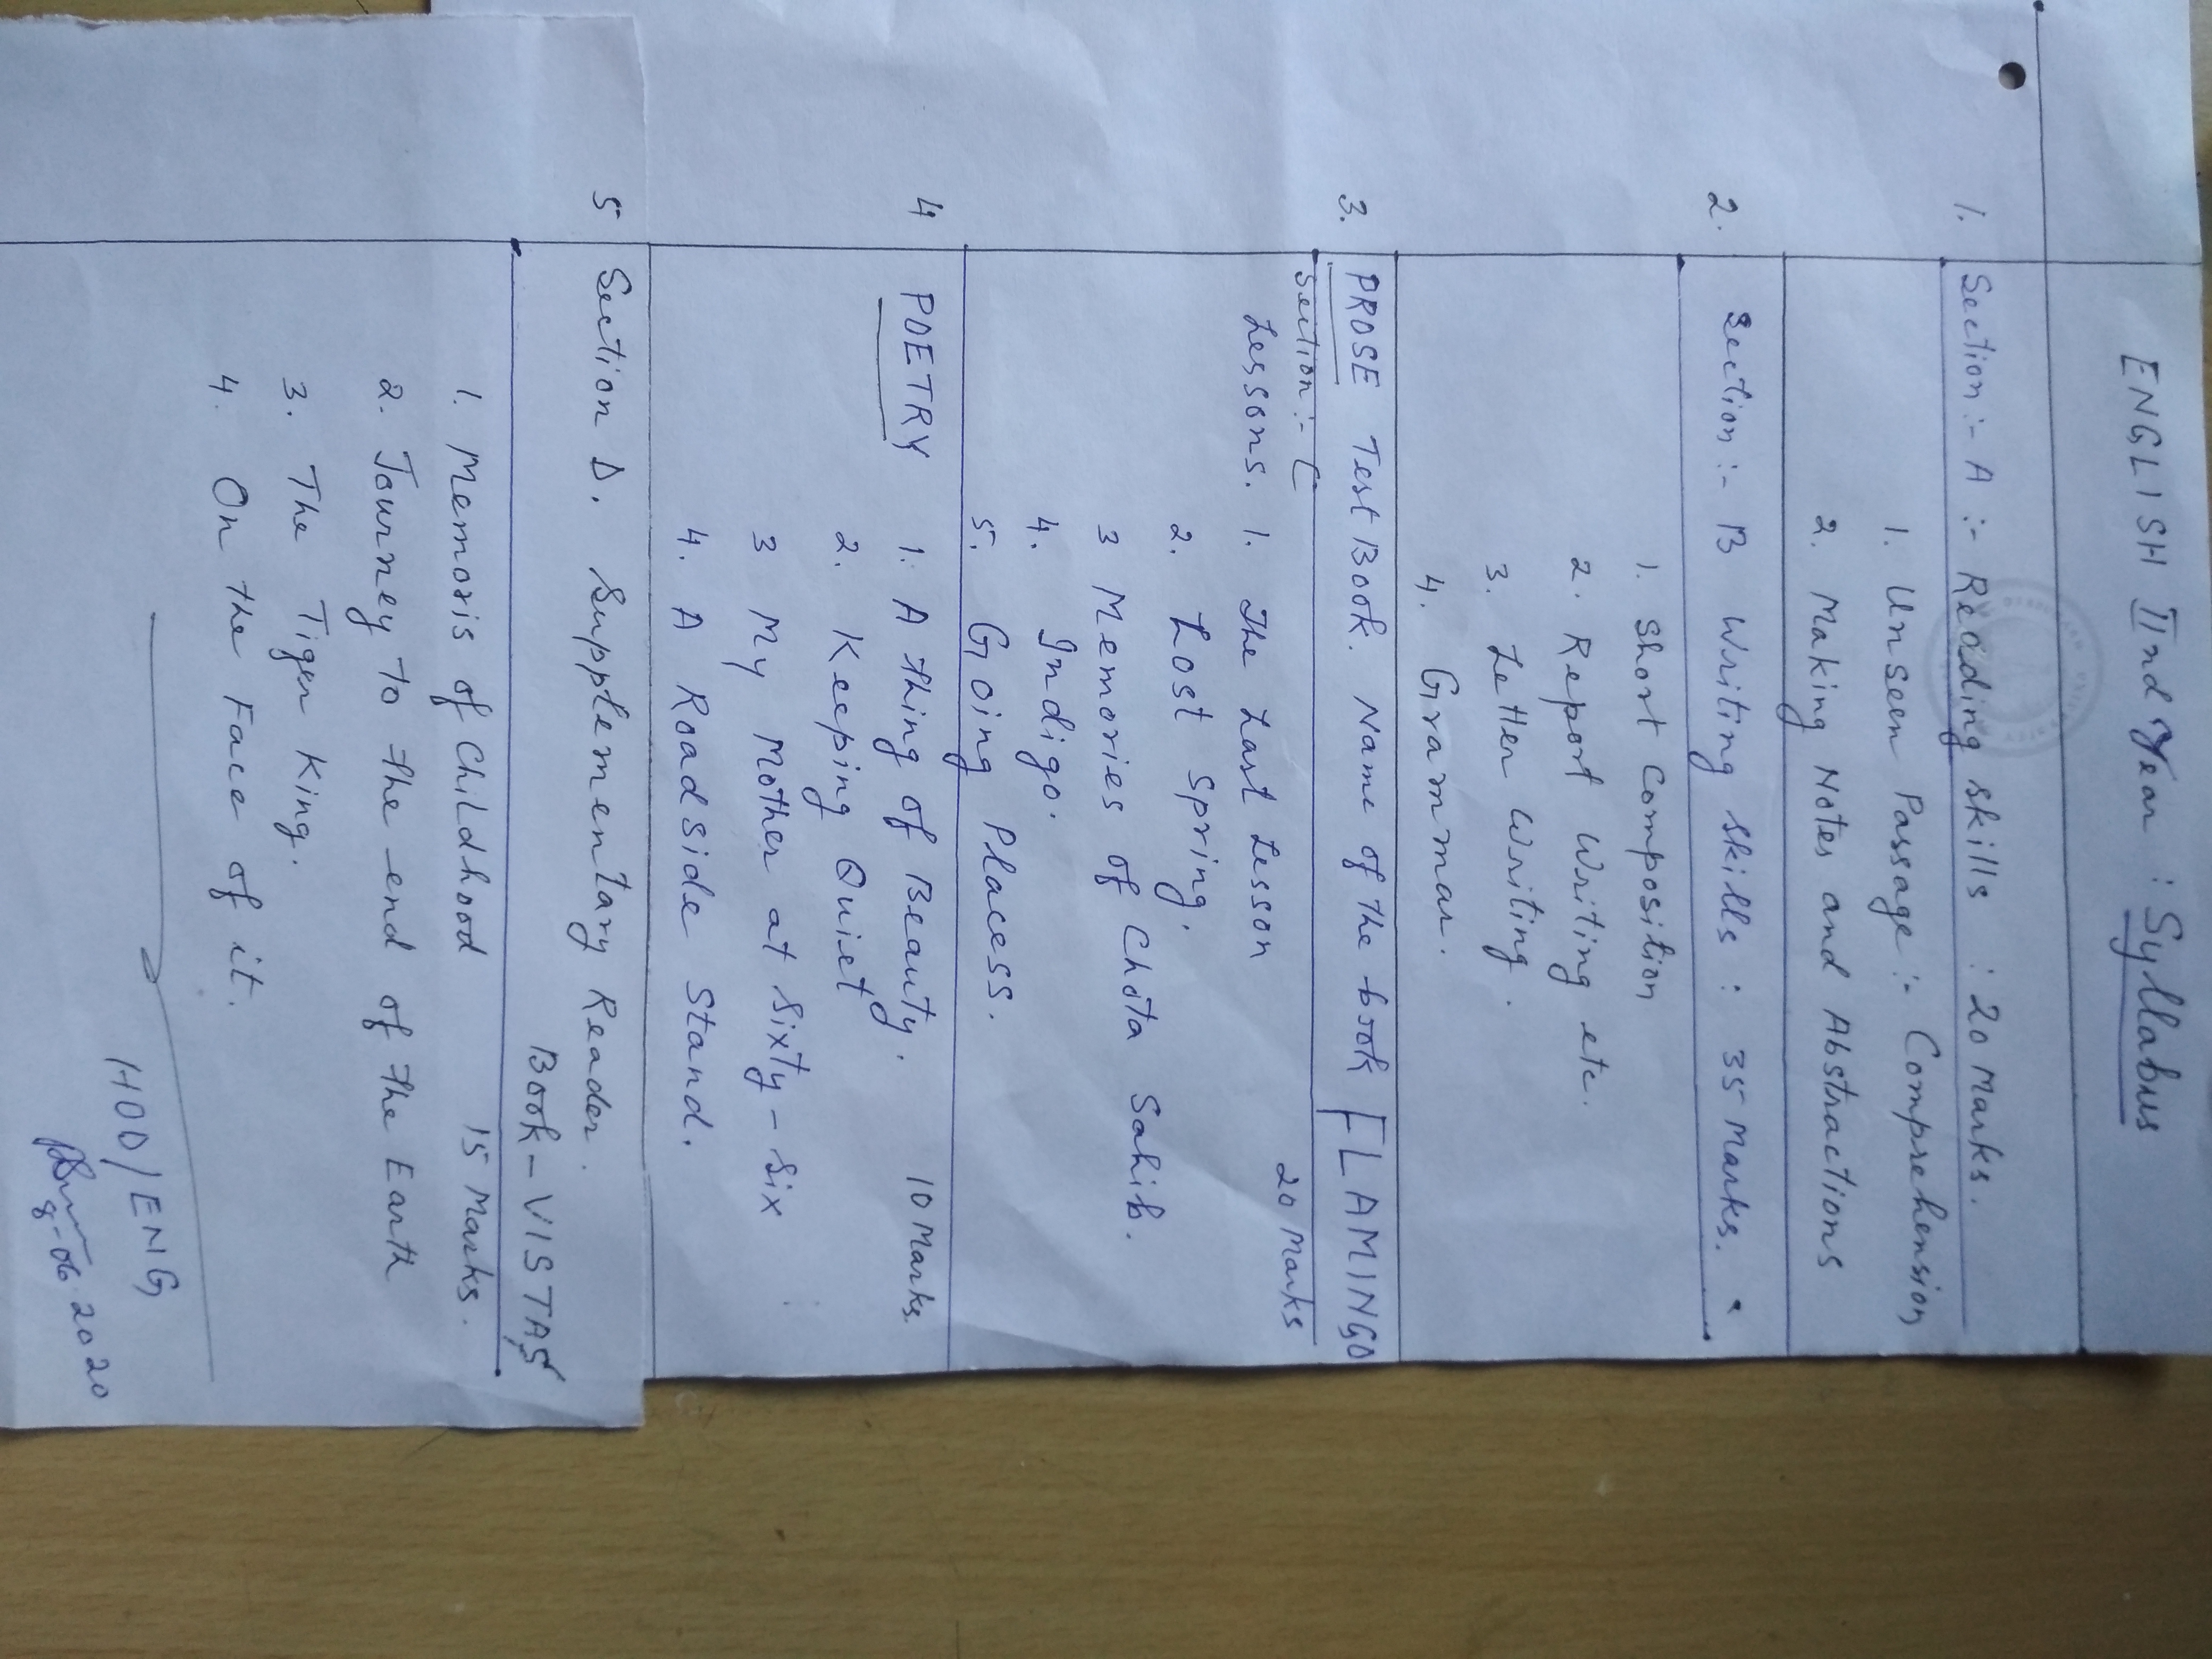 ENGLISH IInd Year : Syllabus
1. Section:- A :- Reading skills : 20 Marks.
1. Unseen Passage:- Comprehension
2. Making Notes and Abstractions
2. Section:- B Writing skills : 35 Marks.
1. Short Composition
2. Report Writing etc.
3. Letter Writing.
4. Grammar.
3. PROSE Test Book. Name of the book [FLAMINGO
Section:- C 20 Marks
Lessons. 1. The Last Lesson
2. Lost Spring.
3 Memories of Chota Sahib.
4. Indigo.
5. Going Places.
4 POETRY 1. A thing of Beauty. 10 Marks.
2. Keeping Quiet
3 My Mother at Sixty-Six
4. A Roadside Stand.
5 Section D. Supplementary Reader.
Book - VISTAS
1. Memoris of Childhood 15 Marks.
2. Journey to the end of the Earth
3. The Tiger King.
4. On the Face of it.
HOD/ENG
8-06.2020